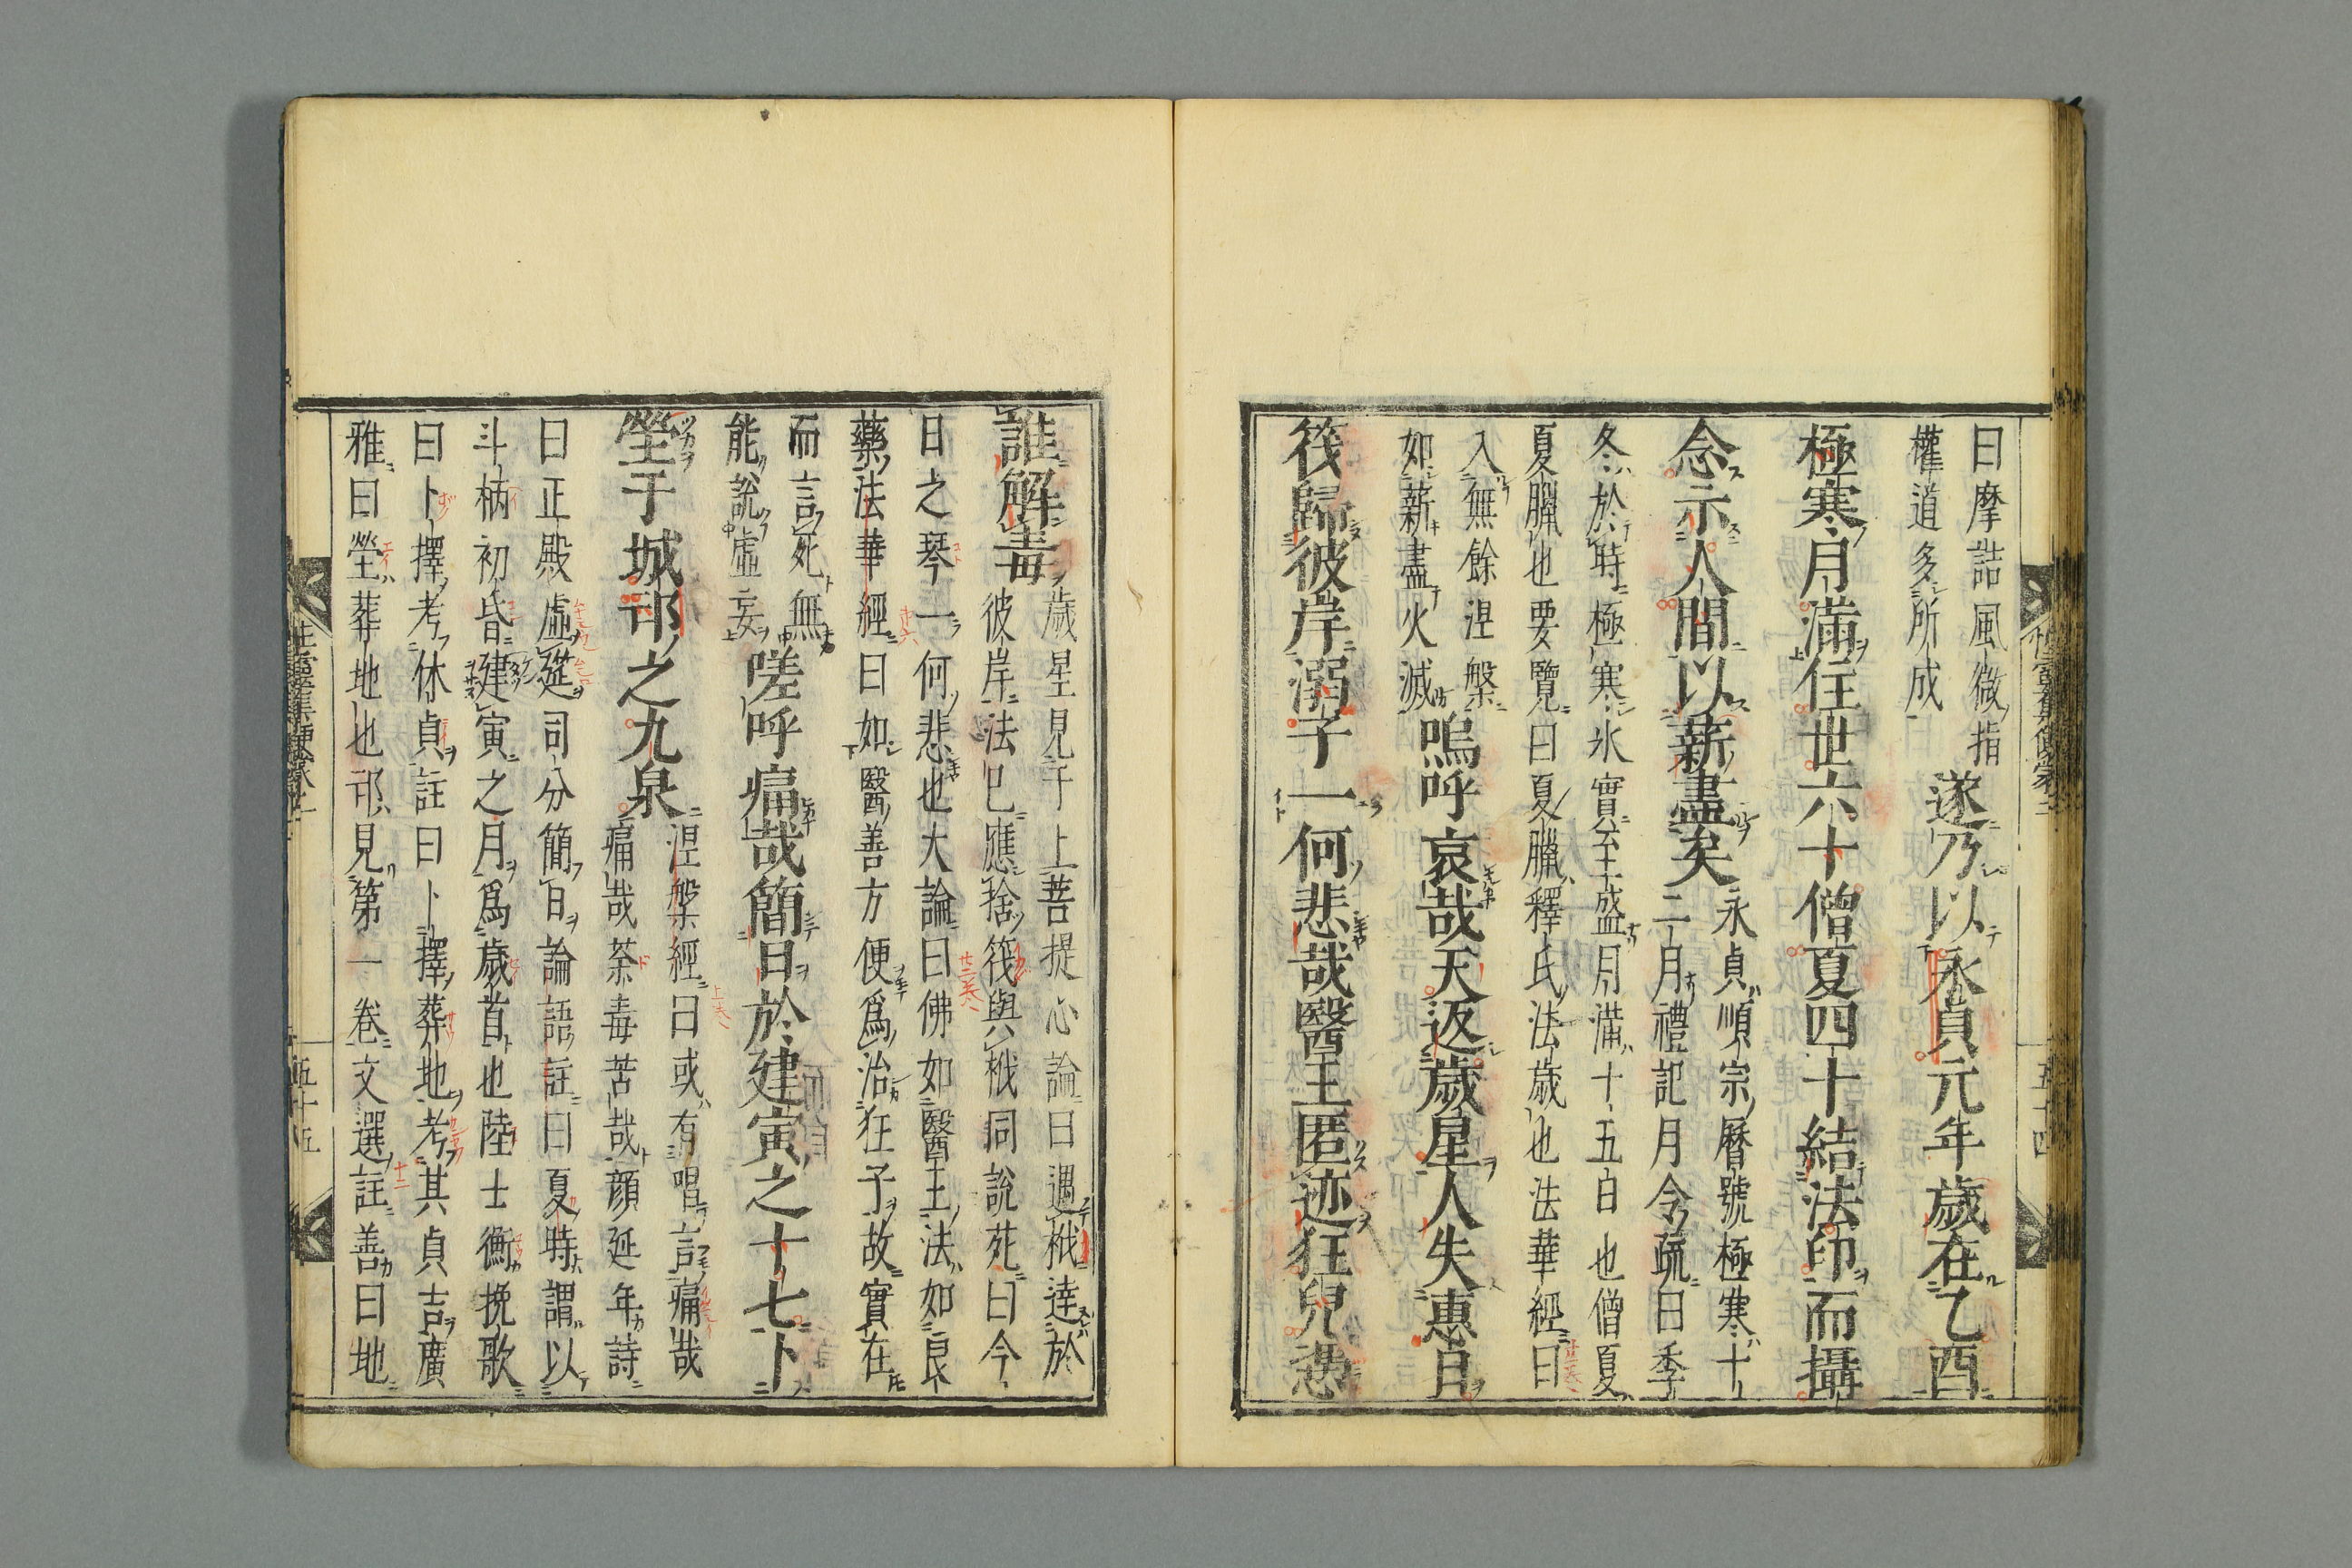 曰摩詰風微指
權道多所成
遂乃以永貞元年歲在乙酉
極寒月滿住世六十僧夏四十結法印而攝
念示人間以薪盡矣
永貞順宗曆號極寒十
二月禮記月令疏曰季
冬於時極寒氷實至盛月滿十五白也僧夏
夏臘也要覽曰夏臘釋氏法歲也法華經曰
入無餘涅槃
如薪盡火滅
嗚呼哀哉天返歲星人失惠日
筏歸彼岸溺子一何悲哉醫王匿迹狂兒憑
誰解毒
歲星見于上菩提心論曰遇栰達於
彼岸法已應捨筏與栰同說苑曰今
日之琴一何悲也大論曰佛如醫王法如良
藥法華經曰如醫善方便爲治狂子故實在
而言死無
能說虛妄
嗟呼痛哉簡日於建寅之十七卜
塋于城邙之九泉
涅槃經曰或有唱言痛哉
痛哉荼毒苦哉顔延年詩
曰正殿虛筵司分簡日論語註曰夏時謂以
斗柄初昏建寅之月爲歲首也陸士衡挽歌
曰卜擇考休貞註曰卜擇葬地考其貞吉廣
雅曰塋葬地也邙見第一卷文選註善曰地
五十四
五十五